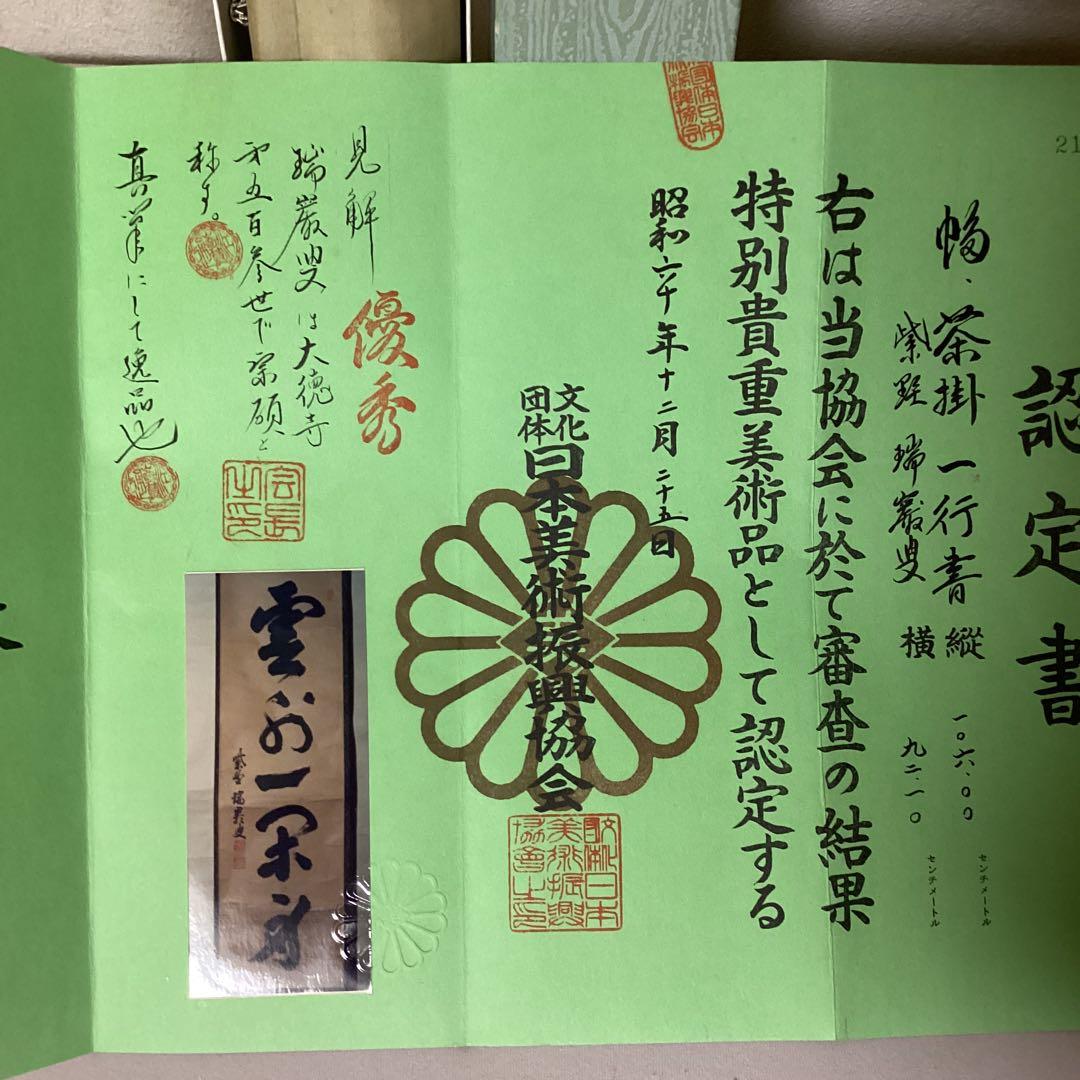 認定書
21
幅、茶掛 一行書 縦 一〇六.〇〇 センチメートル
紫野 瑞巌叟 横 九二.一〇 センチメートル
右は当協会に於て審査の結果
特別貴重美術品として認定する
昭和六十年十二月二十五日
文化団体 日本美術振興協会
文化団体日本美術振興協会之印
優秀
見解
瑞巌叟は大徳寺
第五百参世で宗碩と
称す。
真筆にして逸品也
会長之印
雲外一閑身
紫野 瑞巌叟